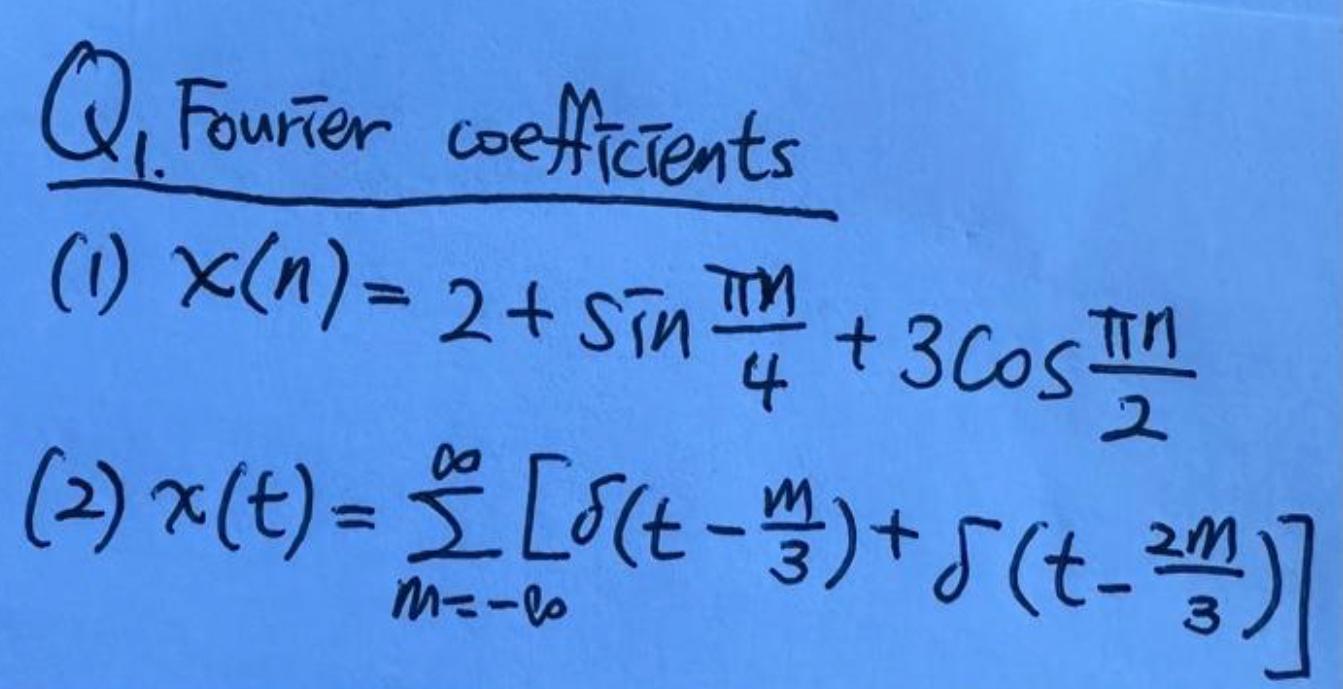 Q1. Fourier coefficients
(1) x(n) = 2 + sin πn/4 + 3cos πn/2
(2) x(t) = ∑_{m=-∞}^{∞} [δ(t - m/3) + δ(t - 2m/3)]